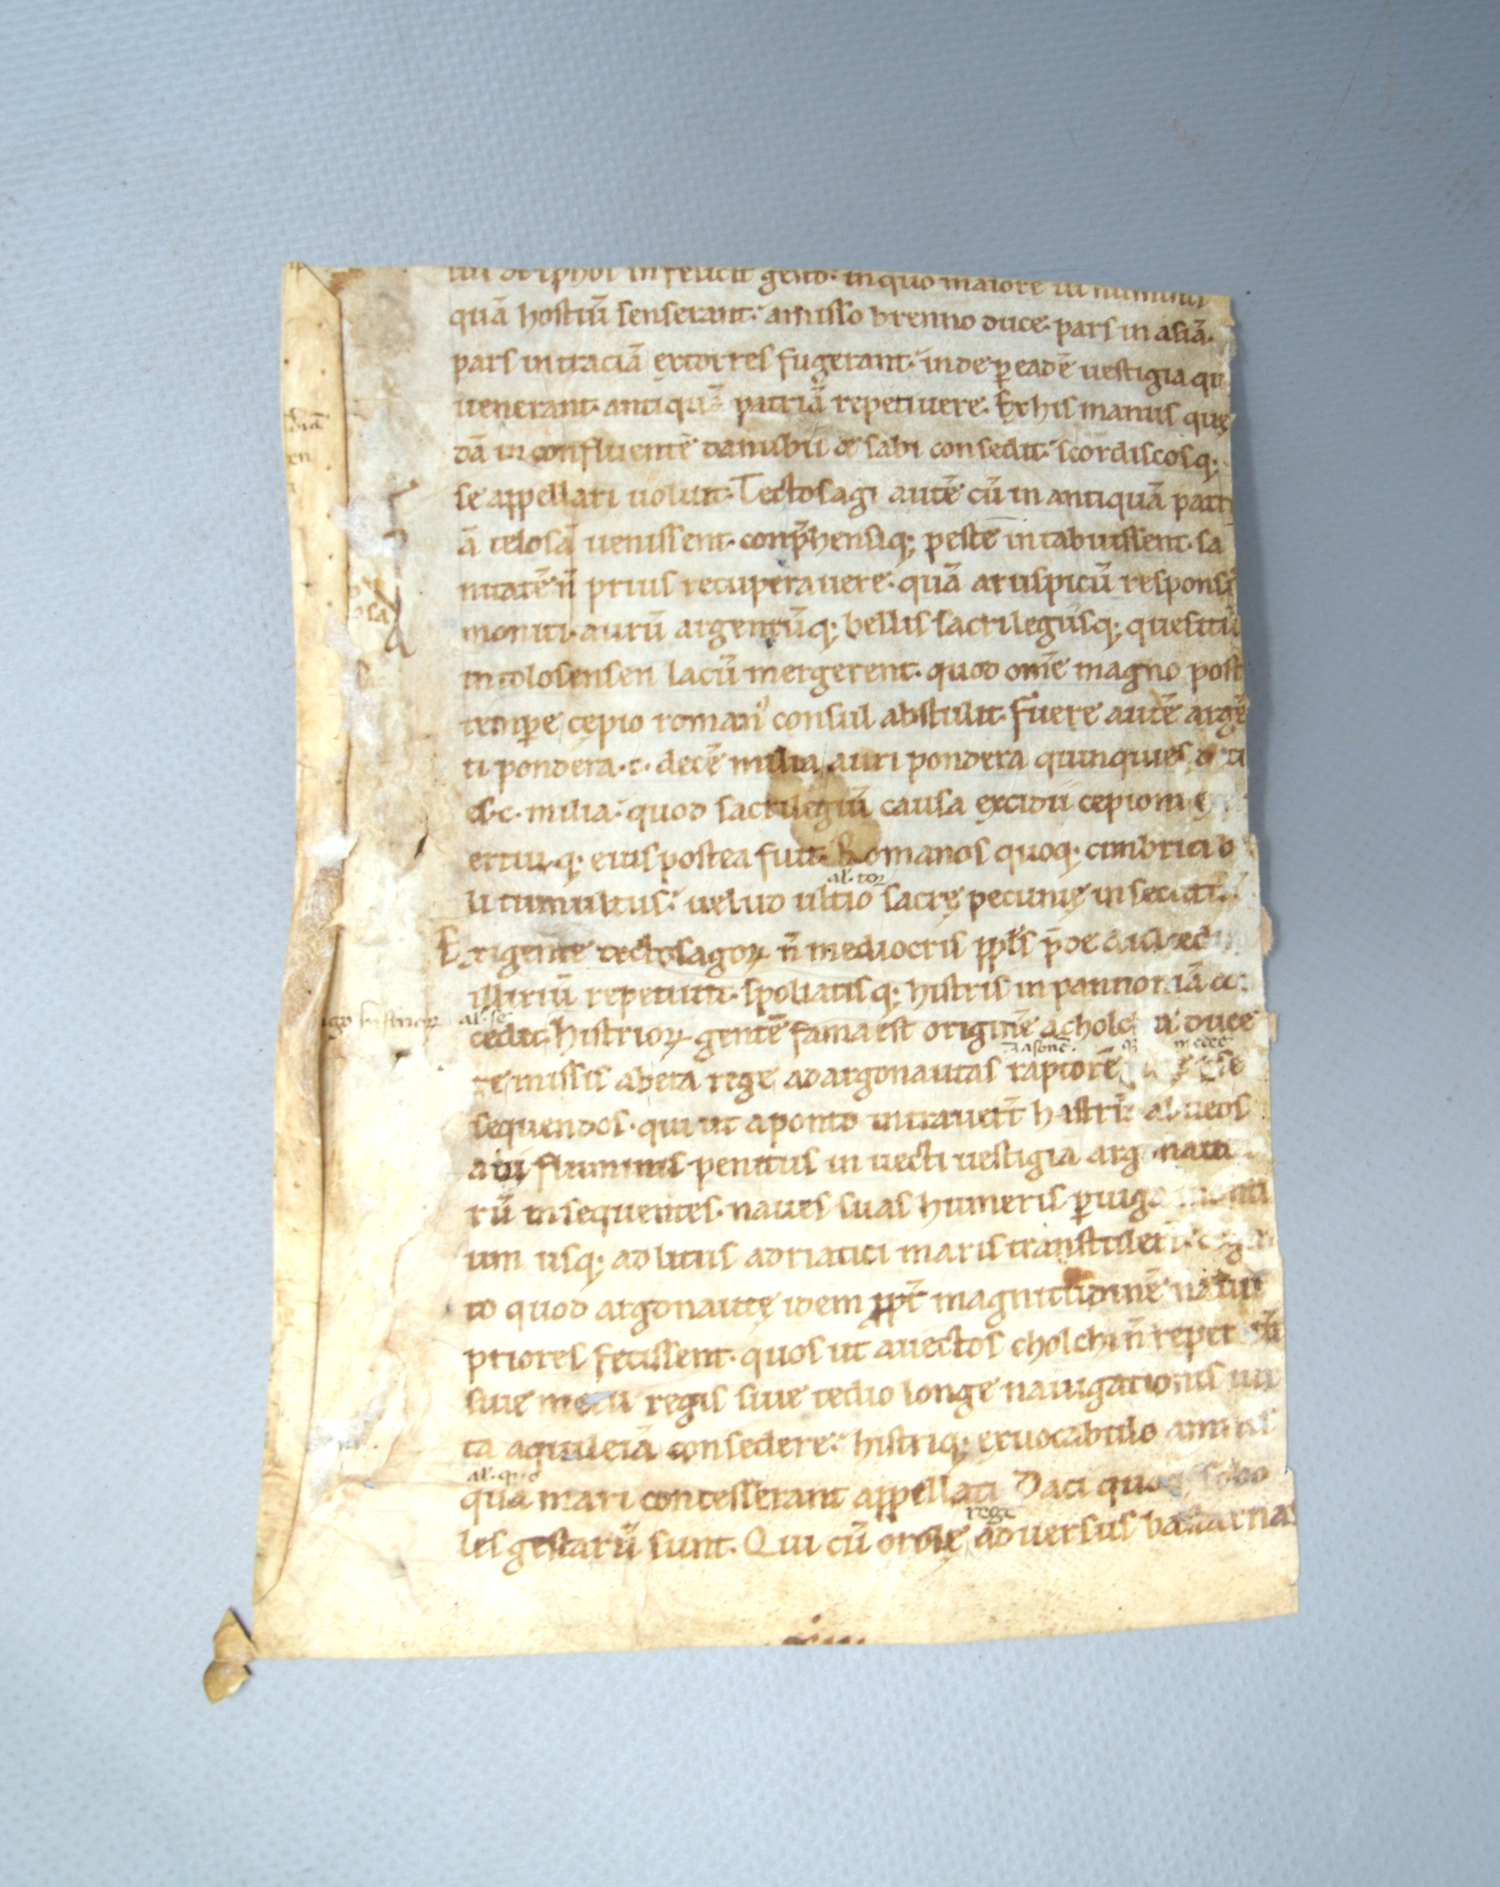 in felicit gesto· in quo maiore
quā hostiū senserant· amisso brenno duce· pars in asiā·
pars in traciā extorres fugerant· inde p eadē uestigia qu
uenerant· antiquā patriā repetiuere· Ex his manus quę
dā in confluentē danubii & sabi consedit· scordiscosq;
se appellari uoluit· Tectosagi autē cū in antiquā patr
ā tolosā uenissent· conp̄hensiq; peste intabuissent· sa
nitatē n̄ prius recuperauere· quā aruspicū responsi
moniti· aurū argentūq; bellis sacrilegiisq; quesitū
in tolosensen lacū mergerent· quod om̄e magno post
tempe cepio roman' consul abstulit· Fuere autē argē
ti pondera· c· decē milia· auri pondera quinquies
c· milia· quod sacrilegiū causa excidii cepioni e
ertiuiq; eius postea fuit· Romanos quoq; cimbrici b
al· tor
li tumultus· uelud ultio sacrę pecunię
E gente tectosagoꝝ n̄ mediocris ppls
illiriū repetiuit· spoliatisq; histris in pannoniā
al· se
cedit· histrioꝝ gentē fama est originē a cholc duce
iasonē·
re missis ab eta rege ad argonautas raptorē
sequendos· qui ut a ponto intrauert̄ histri alueos
fluminis penitus in uecti uestigia argonauta
rū insequentes· naues suas humeris p iuga
um usq; ad litus adriatici maris transtulert̄·
to quod argonautę idem ppt̄ magnitudinē nauiu
priores fecissent· quos ut auectos cholchi n̄
siue metu regis siue tedio longe nauigationis iu
ta aquileiā consedere· histriq; ex uocabulo amnis
al· quo
qua mari concesserant appellati Daci quoq; sobo
rege
les gestarū sunt· Qui cū orole aduersus bastarnas